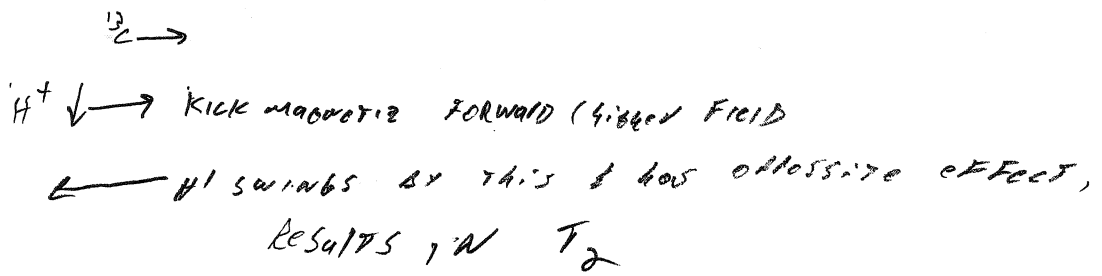 ¹³C →
¹H⁺ ↓→ Kick magnetiz FORWARD (higher FIELD
← H' swings by this & has opposite effect,
Results in T₂